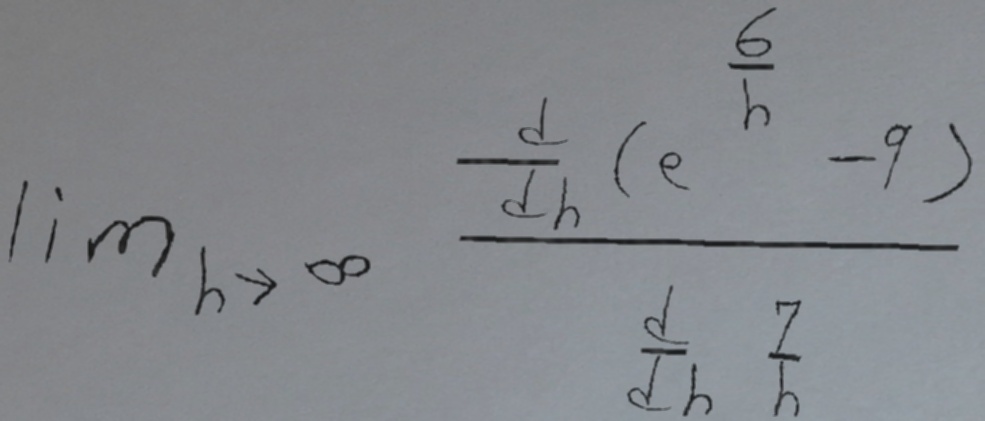 \lim_{h \to \infty} \frac{\frac{d}{dh}(e^{\frac{6}{h}} - 9)}{\frac{d}{dh} \frac{7}{h}}